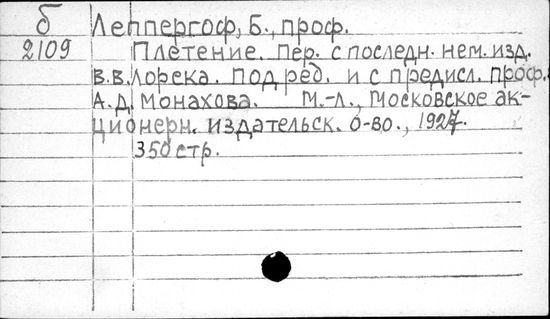 б Леппергоф, Б., проф.
2109 Плетение. Пер. с последн. нем. изд.
В.В. Лорека. Под ред. и с предисл. проф.
А.Д. Монахова. М.-Л., Московское ак-
ционерн. издательск. о-во., 1927.
350 стр.